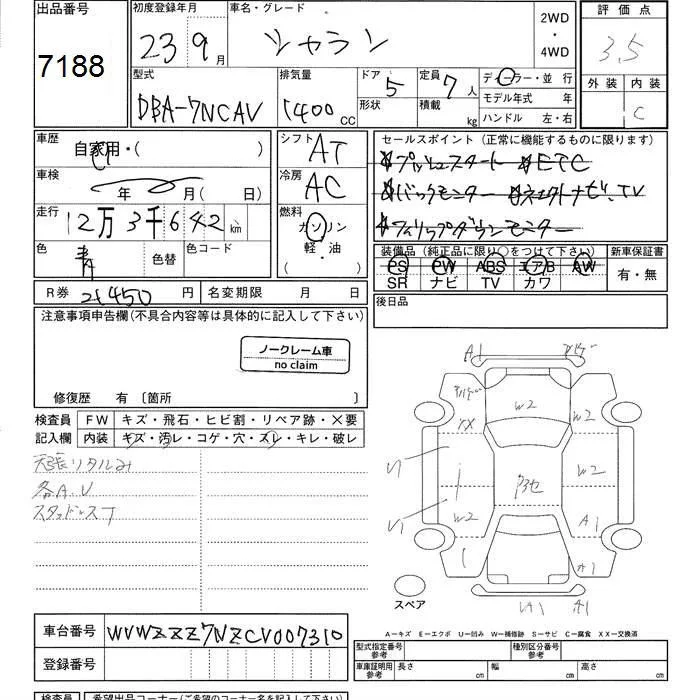 出品番号
7188
初度登録年月
23 9月
車名・グレード
シャラン
2WD
・
4WD
評価点
3,5
外装 内装
C
型式
DBA-7NCAV
排気量
1400 CC
ドア 5
形状
定員 7人
積載 kg
ディーラー・並行
モデル年式 年
ハンドル 左・右
車歴
自家用・( )
車検
年 月( 日)
走行
12万3千642 km
色
青
色替
色コード
シフト
AT
冷房
AC
燃料
ガソリン
軽・油
セールスポイント(正常に機能するものに限ります)
☆プッシュスタート ☆ETC
☆バックモニター ☆ネクストナビ、TV
☆フィリップダウンモニター
装備品(純正品に限り○をつけて下さい)
PS PW ABS エアB AW
SR ナビ TV カワ
新車保証書
有・無
R券 21450円
名変期限 月 日
後日品
注意事項申告欄(不具合内容等は具体的に記入して下さい)
ノークレーム車
no claim
修復歴 有 〔箇所 〕
検査員
記入欄
FW キズ・飛石・ヒビ割・リペア跡・×要
内装 キズ・汚レ・コゲ・穴・スレ・キレ・破レ
天張リタルみ
各A.U
スタッドレス
A1
W2
XX
W2
U1
W2
U1
W2
A1
A1
A1
スペア
A-キズ E-エクボ U-凹み W-補修跡 S-サビ C-腐食 XX-交換済
車台番号
WVWZZZ7NZCV007310
登録番号
型式指定番号
参考
種別区分番号
参考
車庫証明用
参考
長さ cm
幅 cm
高さ cm
検査員
希望出品コーナー(ご希望のコーナー名を記入して下さい)